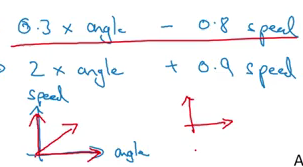 0.3 x angle - 0.8 speed
2 x angle + 0.9 speed
speed
angle
A